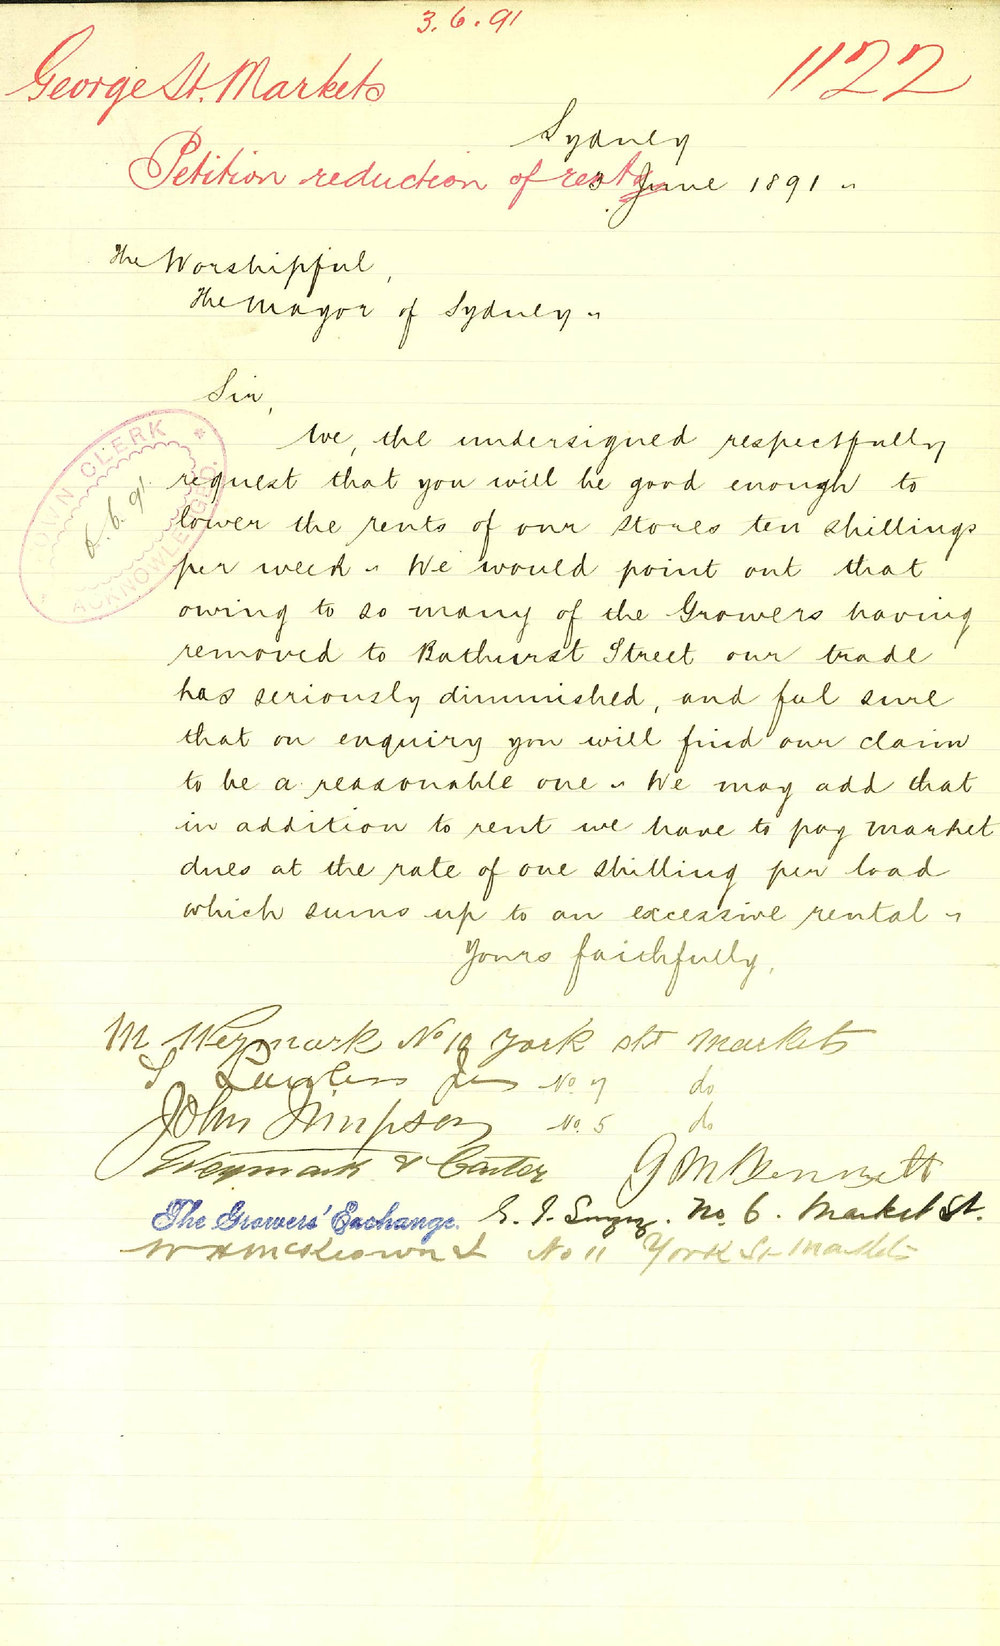 3.6.91
George St. Markets
1122
Sydney
Petition reduction of rents
3 June 1891 "
The Worshipful,
The Mayor of Sydney "
Sir,
We, the undersigned respectfully
request that you will be good enough to
lower the rents of our stores ten shillings
per week " We would point out that
owing to so many of the Growers having
removed to Bathurst Street our trade
has seriously diminished, and feel sure
that on enquiry you will find our claim
to be a reasonable one " We may add that
in addition to rent we have to pay market
dues at the rate of one shilling per load
which sums up to an excessive rental "
Yours faithfully,
TOWN CLERK
6.6.91
ACKNOWLEDGED
M Weymark No 10 York St Markets
No. 7 do
John Simpson No. 5 do
Weymark & Carter G M Bennett
The Growers' Exchange. No. 6. Market St.
W H McKeown No 11 York St Markets